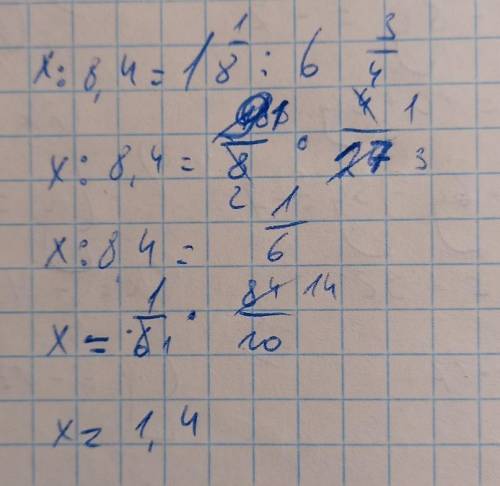 x : 8,4 = 1 1/8 : 6 3/4
x : 8,4 = 9 1/8 2 · 4 1/27 3
x : 8 4 = 1/6
x = 1/6 1 · 84 14/10
x = 1,4